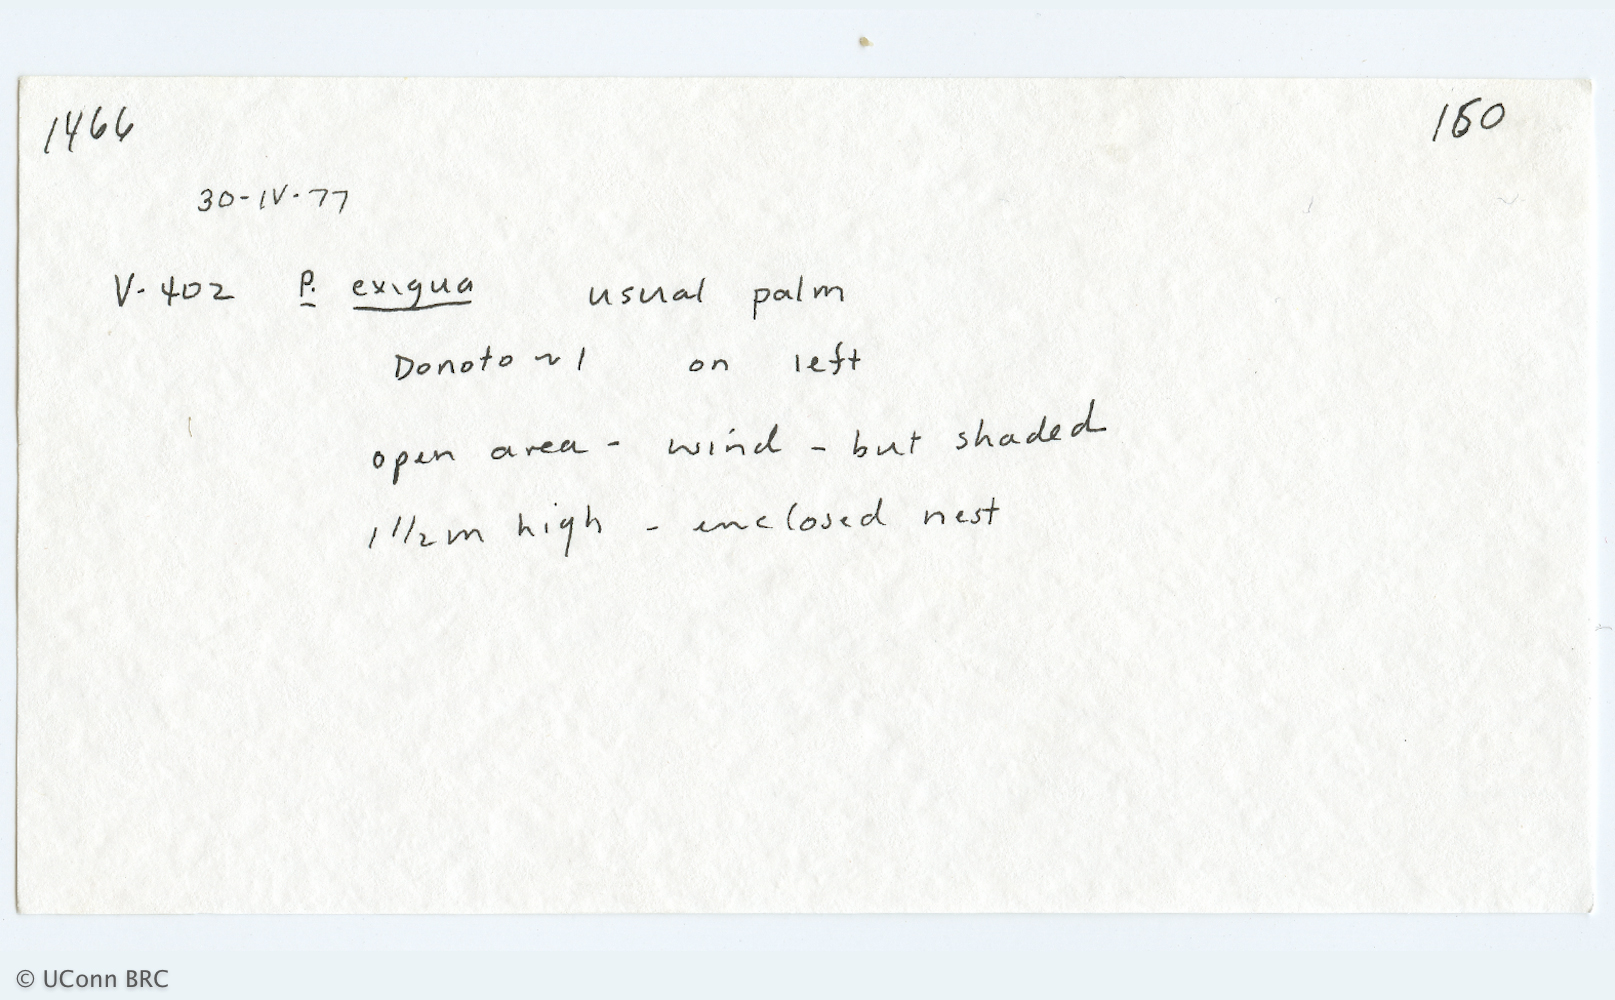 1466 150
30-IV-77
V-402 P. exigua usual palm
Donoto ~1 on left
open area - wind - but shaded
1 1/2m high - enclosed nest
© UConn BRC